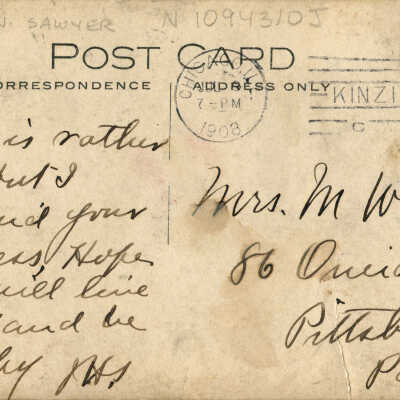 N. SAWYER N109431OJ
POST CARD
CORRESPONDENCE ADDRESS ONLY
CHICAGO, ILL.
7-PM
1908
KINZI
C
is rather
but I
your
ess, Hope
will live
and be
by JHS
Mrs. M W
86 Oneid
Pittsb
Pa